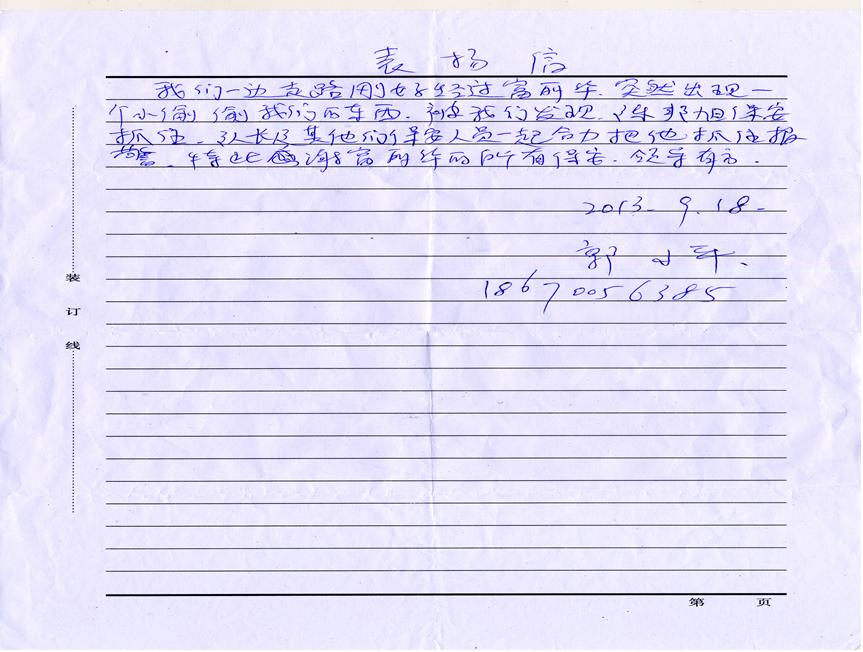 表扬信
我们一边走路刚好经过富丽华.突然出现一
个小偷偷我们的东西.被我们发现.陈邦旭保安
抓住.队长及其他们保安人员一起合力把他抓住报
警.特此感谢富丽华的所有保安.领导有方.
2013-9.18-
郭小军.
18670056385
装
订
线
第 页